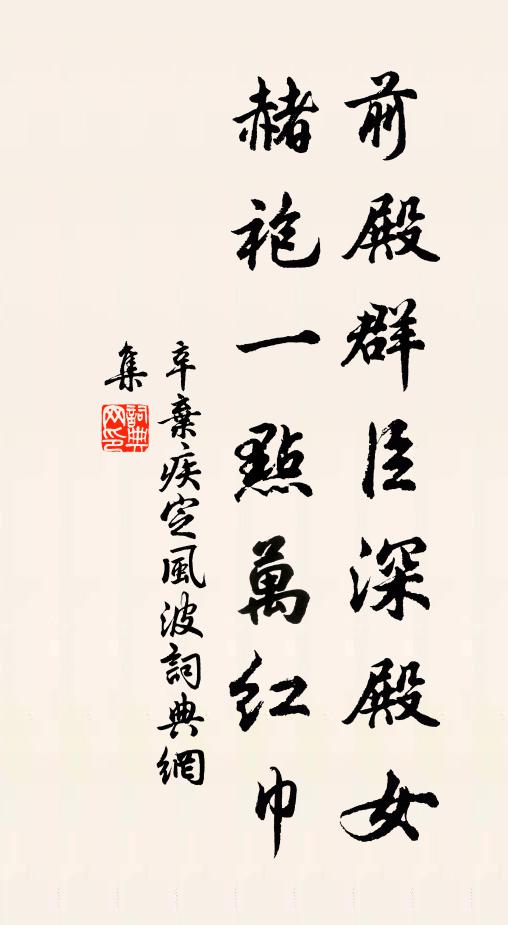 前殿群臣深殿女
赭袍一點萬紅巾
辛棄疾定風波詞典網
集
詞典網印